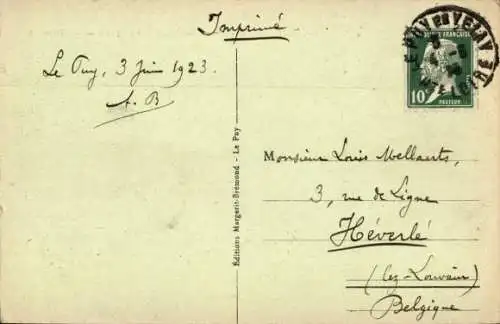 Imprimé
Le Puy, 3 Juin 1923.
A. B
LE PUY EN VELAY
FRANÇAISE
10
PASTEUR
Éditions Margerit-Brémond - Le Puy
Monsieur Louis Mellaerts,
3, rue de Ligne
Héverlé
(lez-Louvain)
Belgique